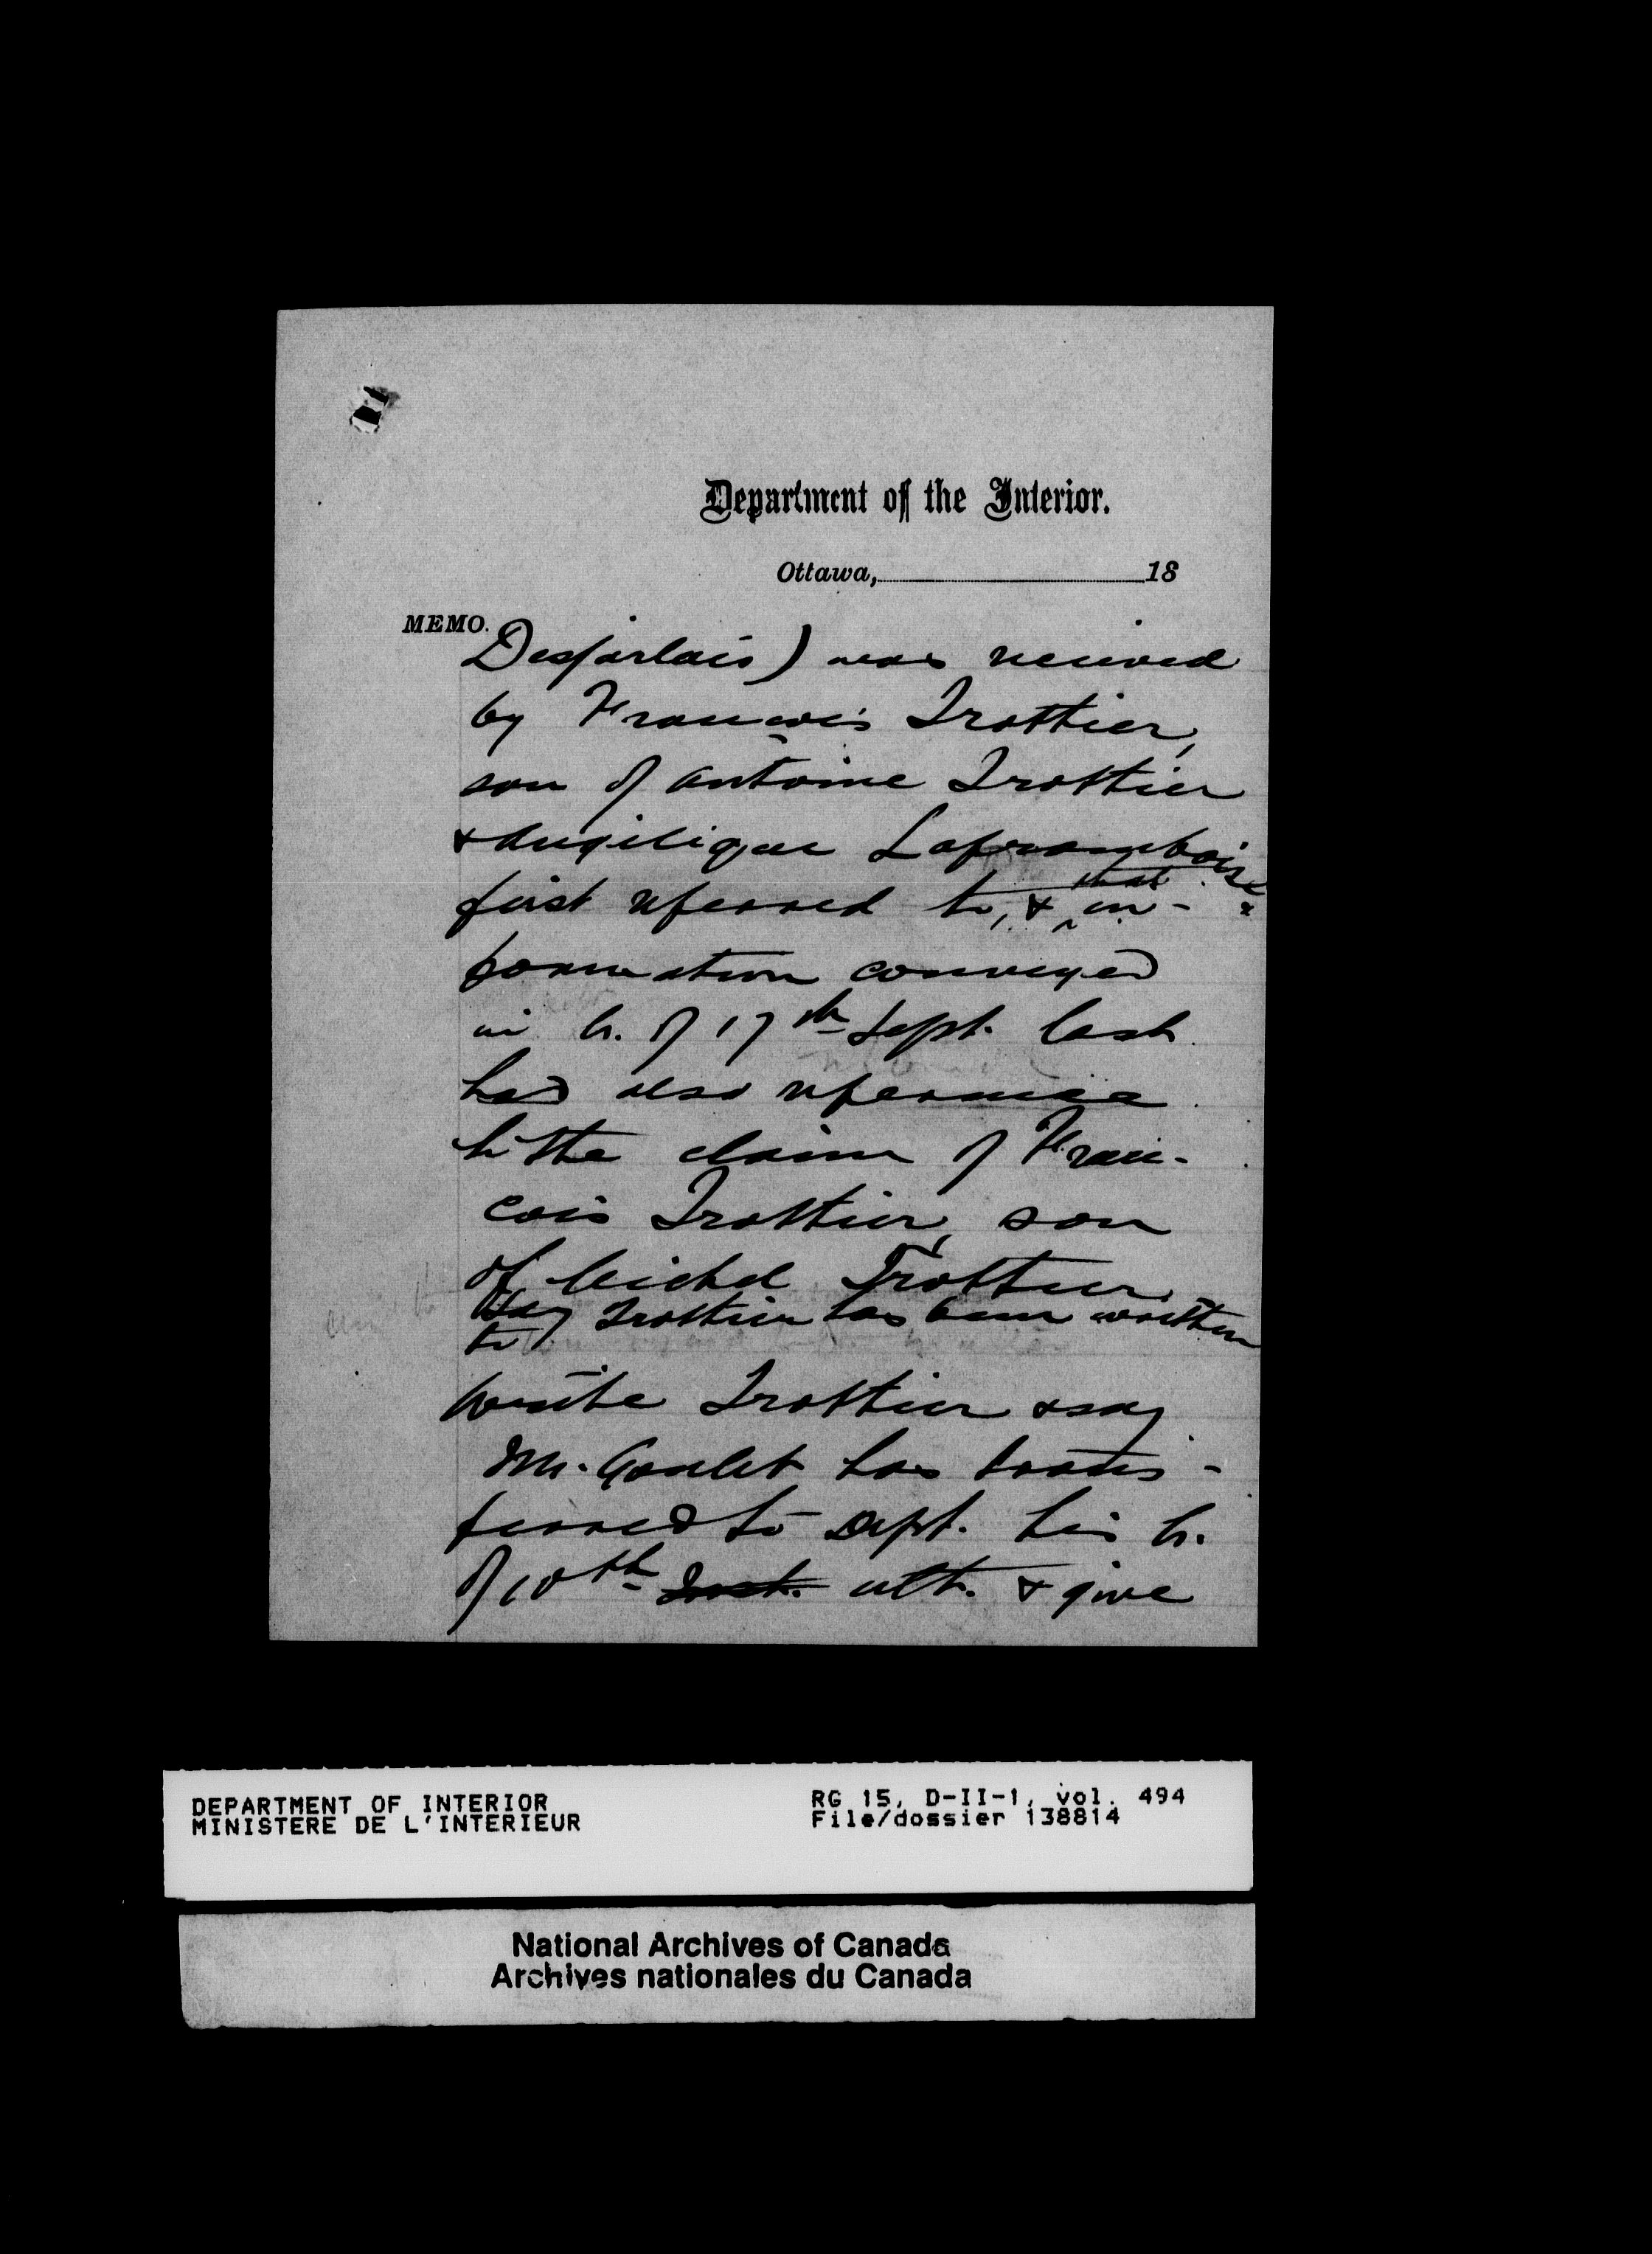 Department of the Interior.
Ottawa, 18
MEMO.
Desjarlais) was received
by François Trottier,
son of Antoine Trottier
& Angelique Laframboise
first referred to, & that in-
formation conveyed
in l. of 17th Sept. last
had also reference
to the claim of Fran-
cois Trottier, son
of Michel Trottier.
Say Trottier has been written
to
Write Trottier & say
Mr. Goulet has trans-
ferred to Dept. his l.
of 10th Inst. ult. & give
DEPARTMENT OF INTERIOR
MINISTERE DE L'INTERIEUR
RG 15, D-II-1, vol. 494
File/dossier 138814
National Archives of Canada
Archives nationales du Canada